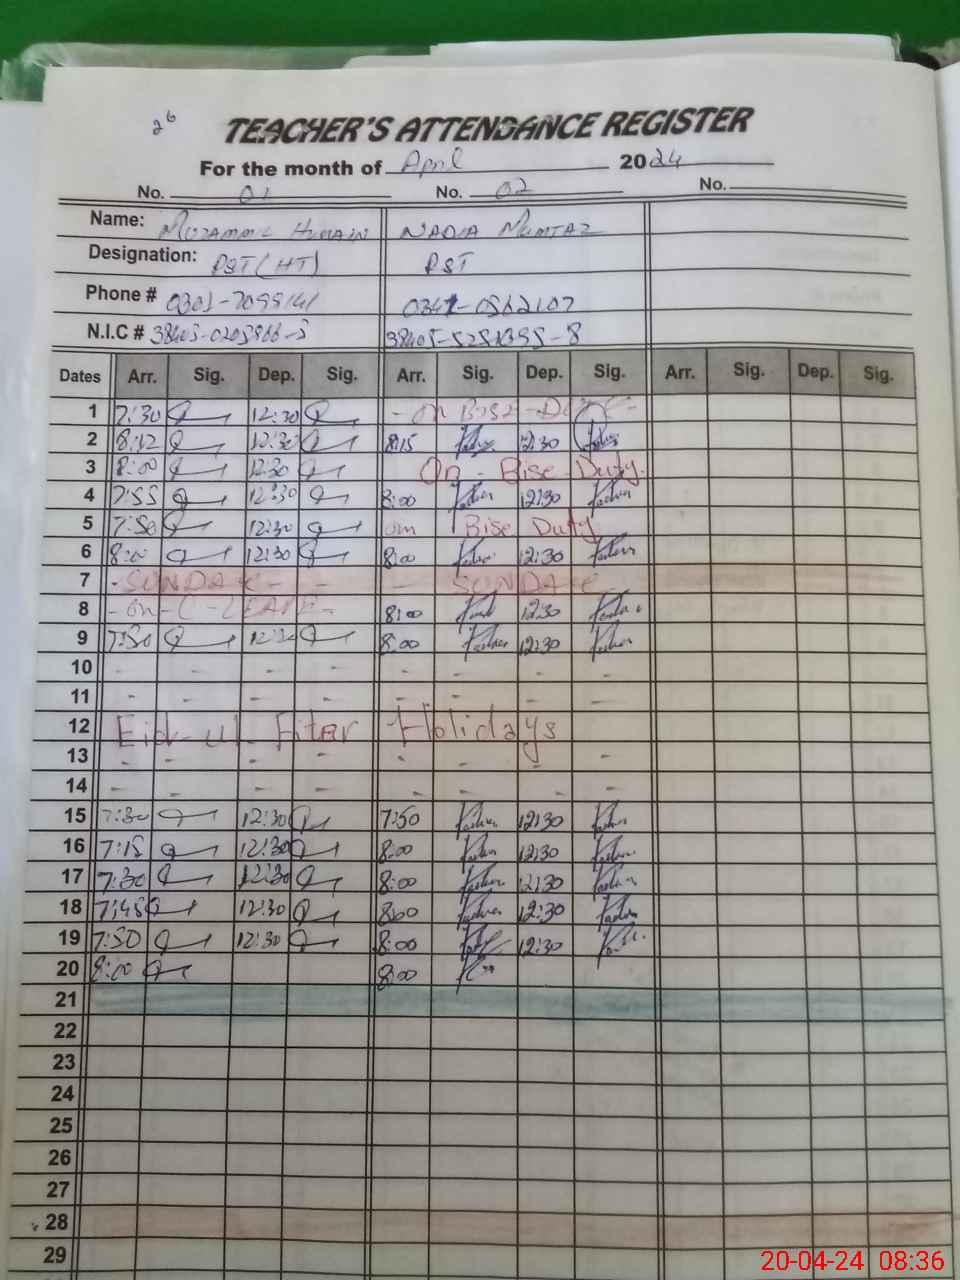 26
TEACHER'S ATTENDANCE REGISTER
For the month of April 2024
No. 01 No. 02 No.
Name: NADIA MUMTAZ
Designation: PST (HT) PST
Phone #
N.I.C #
Dates Arr. Sig. Dep. Sig. Arr. Sig. Dep. Sig. Arr. Sig. Dep. Sig.
1 7:30 12:30 - on Bise - Duty -
2 8:12 12:30 8:15 12:30
3 8:00 12:30 On - Bise - Duty.
4 7:55 12:30 8:00 12:30
5 7:50 12:30 on Bise Duty
6 8:00 12:30 8:00 12:30
7 - SUNDAY - - - SUNDAY
8 - on - C - LEAVE - 8:00 12:30
9 7:30 12:30 8:00 12:30
10 - - - - - - - -
11 - - - - - - - -
12 Eid-ul-Fiter Holidays
13 - - - - - - - -
14 - - - - - - - -
15 7:30 12:30 7:50 12:30
16 7:15 12:30 8:00 12:30
17 7:30 12:30 8:00 12:30
18 7:45 12:30 8:00 12:30
19 7:50 12:30 8:00 12:30
20 8:00 8:00
21
22
23
24
25
26
27
28
29
20-04-24 08:36